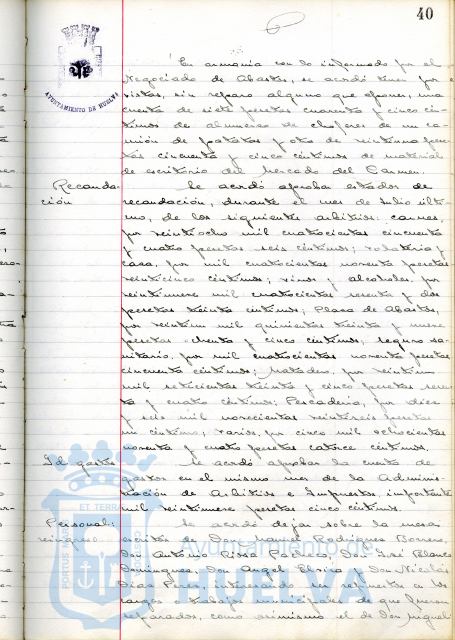 40
AYUNTAMIENTO DE HUELVA
En armonía con lo informado por el
Negociado de Abastos, se acordó tener por
vistas, sin reparo alguno que oponer, una
cuenta de siete pesetas cuarenta y cinco cén-
timos de almuerzo de choferes de un ca-
mión de patatas y otro de veintiuna pese-
tas cincuenta y cinco céntimos de material
de escritorio del Mercado del Carmen.
Recauda-
ción
Se acordó aprobar estados de
recaudación, durante el mes de Julio últi-
mo, de los siguientes arbitrios: carnes,
por veintiocho mil cuatrocientas cincuenta
y cuatro pesetas seis céntimos; volatería y
caza, por mil cuatrocientas noventa pesetas
veinticinco céntimos; vinos y alcoholes, por
veintinueve mil cuatrocientas setenta y dos
pesetas treinta céntimos; Plaza de Abastos,
por veintiun mil quinientas treinta y nueve
pesetas y cinco céntimos, seguro sa-
nitario, por mil cuatrocientas noventa pesetas
cincuenta céntimos; Matadero, por veintiun
mil setecientas treinta y cinco pesetas
y cuatro céntimos; Pescadería, por
y seis mil novecientas veintitres pesetas
un céntimo; varios, por cinco mil ochocientas
noventa y cuatro pesetas catorce céntimos.
Id. gastos
Se acordó aprobar la cuenta de
gastos en el mismo mes de la Adminis-
tración de Arbitrios e Impuestos, importante
mil veintinueve pesetas cinco céntimos.
Personal:
reingreso.
Se acordó dejar sobre la mesa
escritos de Don Manuel Rodríguez Borrero,
Don Antonio Pacheco, Don José Blanco
Domínguez, Don Angel y Don Nicolás
Díaz Pérez interesando ser repuestos en los
cargos municipales de que fueron
separados, como asimismo el de Don Miguel
PORTUS
ET TERRAE
Ayuntamiento de
HUELVA